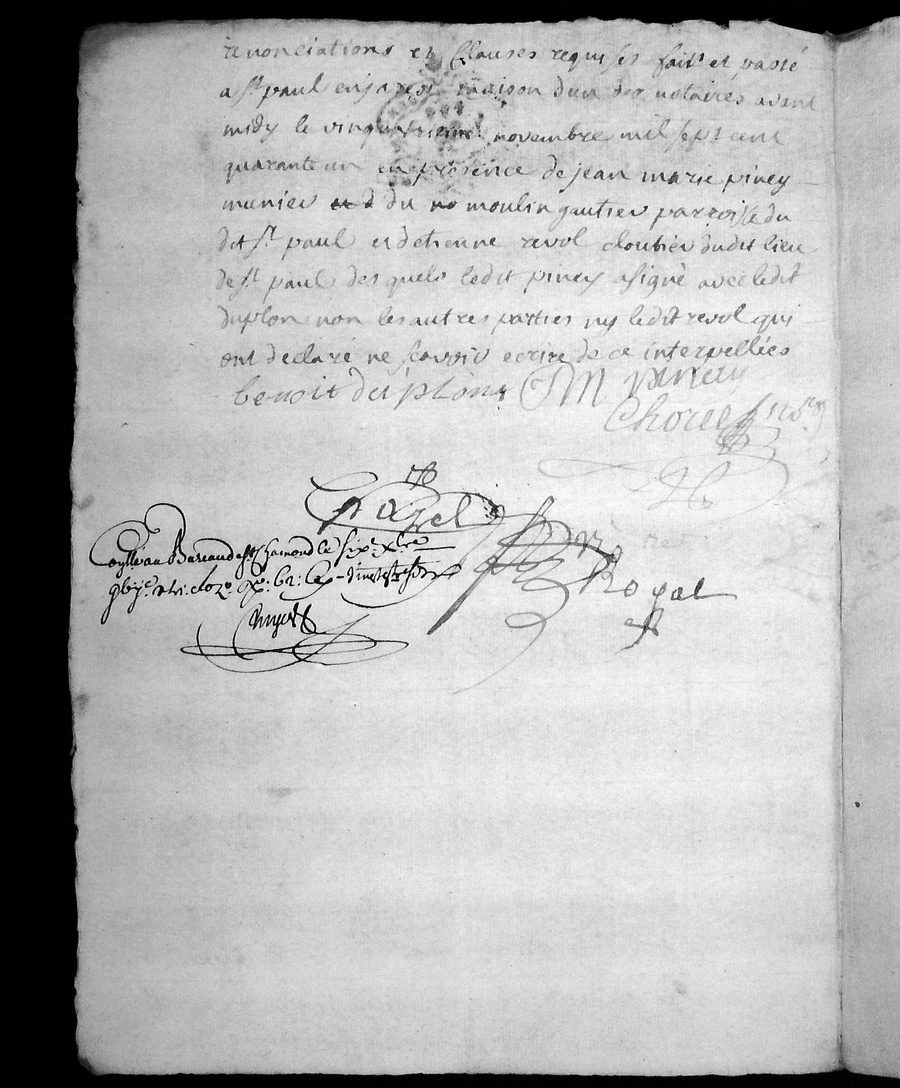 renonciations et Clauses requises fait et passé
a st paul enjarest maison d'un des notaires avant
midy le vingt quatrieme novembre mil sept cent
quarante un en presence de jean marie piney
munier du moulin gautier parroisse du
dit st paul et detienne revol cloutier dudit lieu
de st paul des quels ledit piney a signé avec ledit
duplon non les autres parties ny ledit revol qui
ont declaré ne scavoir ecrire de ce interpellées
benoit du plons JM piney
not re
not re
Royal
au Bureau de st Chamond le six